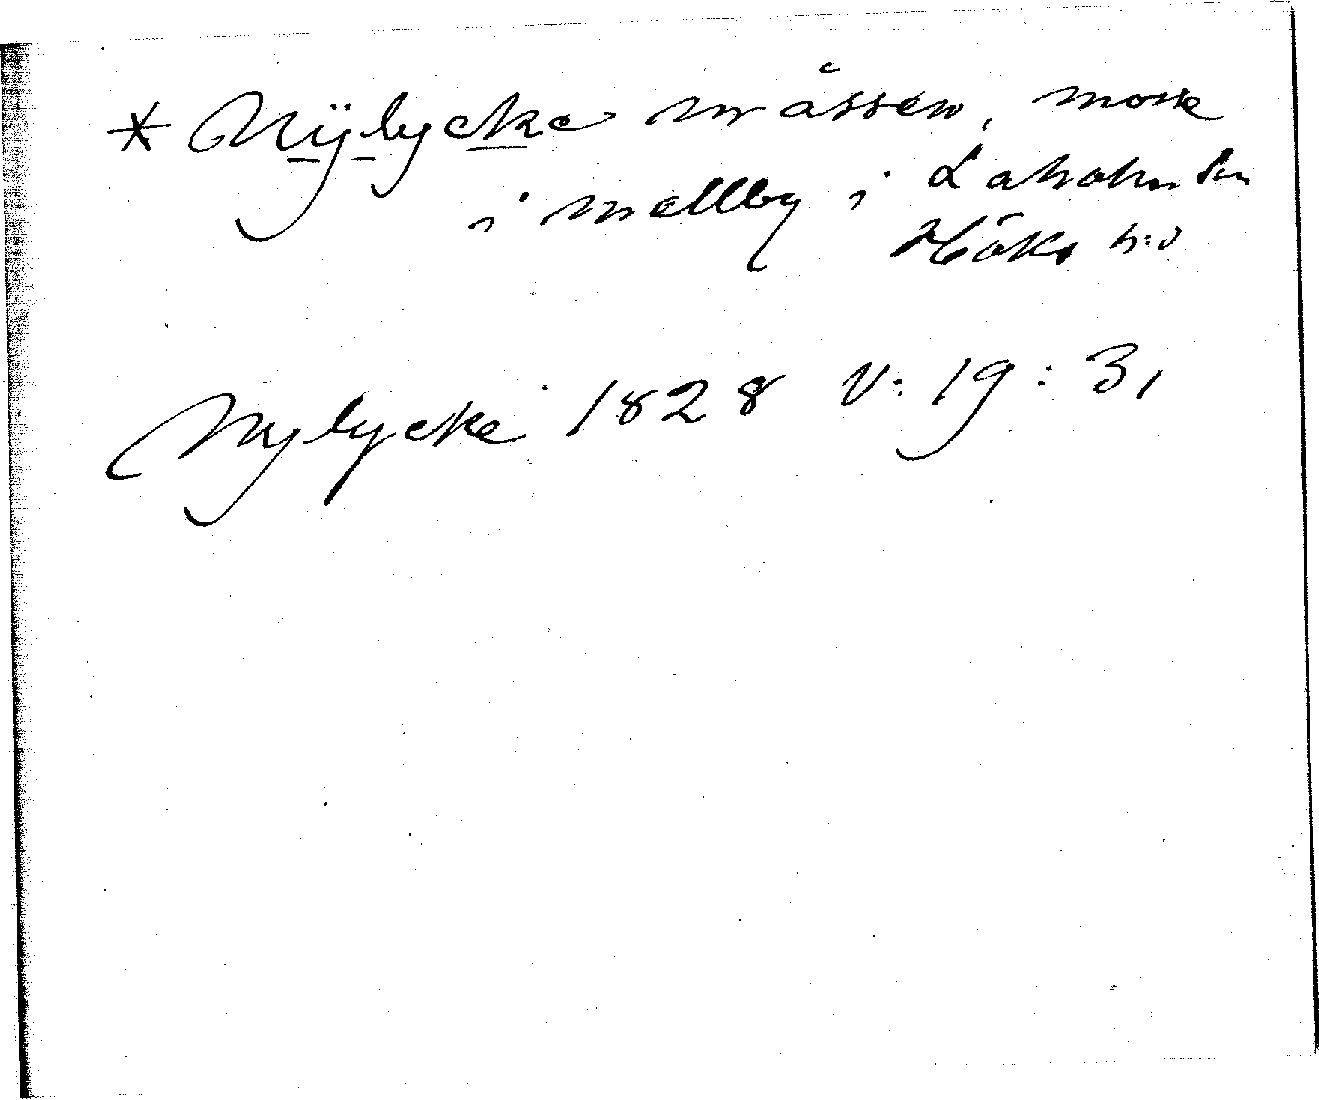 * Nÿlycke måssen, mosse
i mellby i Laholm sn
Höks h:d
Nylycke 1828 V: 19: 3,